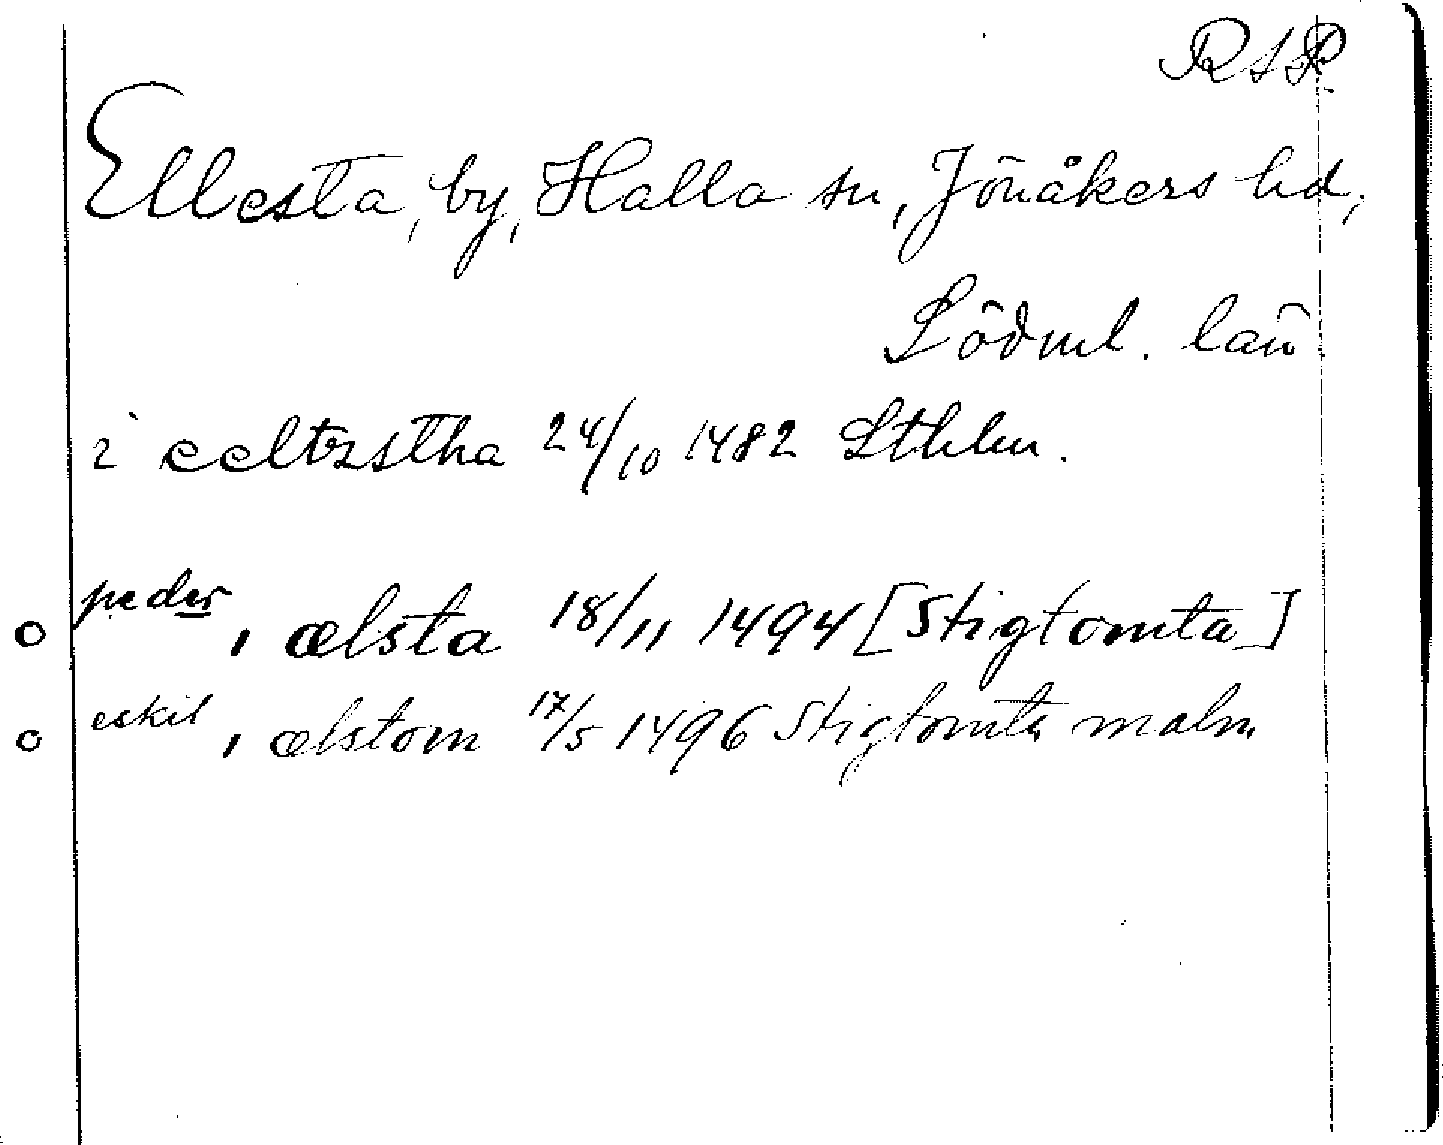 RAP.
Ellesta, by, Halla sn, Jönåkers hd,
Södml. län
i eeltzstha 24/10 1482 Sthlm.
peder, i ælsta 18/11 1494 [Stigtomta]
eskil, i ælstom 17/5 1496 Stigtomta malm